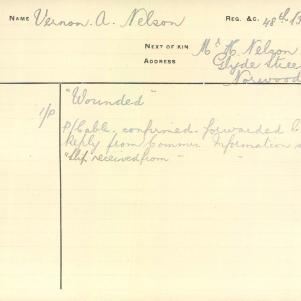 NAME Vernon. A. Nelson REG. &C. 48th B
NEXT OF KIN Mr H. Nelson
ADDRESS Clyde Stree
Norwood
"Wounded"
1/P P/Cable. confirmed. forwarded
Reply from Commr. Information
"Slip received from" "